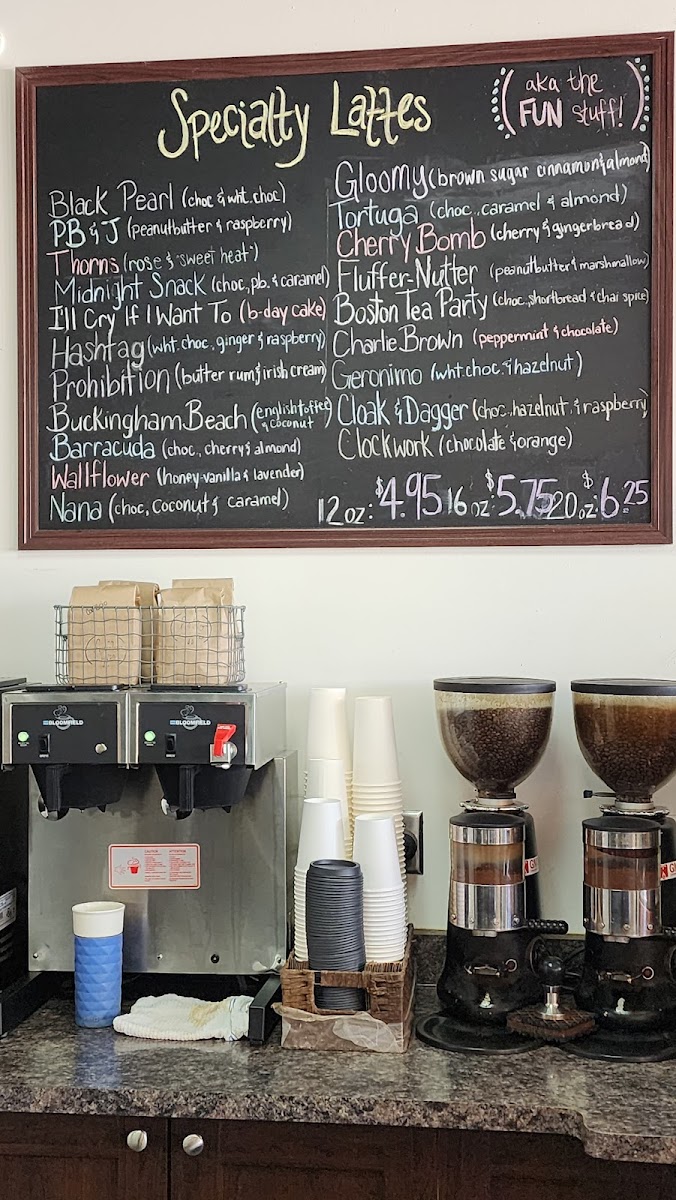 Specialty Lattes
(aka the
FUN stuff!)
Black Pearl (choc & wht. choc)
PB & J (peanutbutter & raspberry)
Thorns (rose & "sweet heat")
Midnight Snack (choc, pb. & caramel)
I'll Cry If I Want To (b-day cake)
Hashtag (wht. choc, ginger & raspberry)
Prohibition (butter rum & irish cream)
Buckingham Beach (english toffee
& coconut)
Barracuda (choc, cherry & almond)
Wallflower (honey-vanilla & lavender)
Nana (choc, coconut & caramel)
Gloomy (brown sugar cinnamon & almond)
Tortuga (choc, caramel & almond)
Cherry Bomb (cherry & gingerbread)
Fluffer-Nutter (peanutbutter & marshmallow)
Boston Tea Party (choc, shortbread & chai spice)
Charlie Brown (peppermint & chocolate)
Geronimo (wht. choc. & hazelnut)
Cloak & Dagger (choc, hazelnut & raspberry)
Clockwork (chocolate & orange)
12 oz: $4.95 16 oz: $5.75 20 oz: $6.25
BLOOMFIELD
BLOOMFIELD
CAUTION ATTENTION